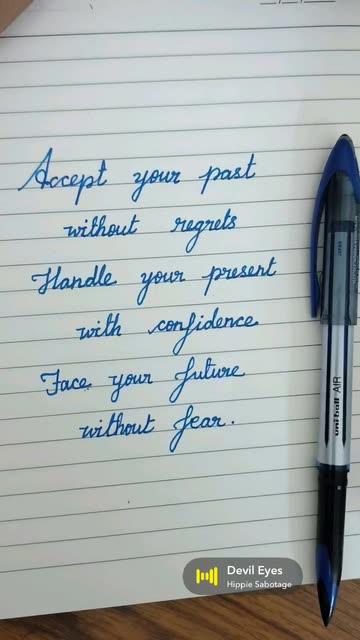 Accept your past
without regrets
Handle your present
with confidence
Face your future
without fear.
uni-ball AIR
Devil Eyes
Hippie Sabotage